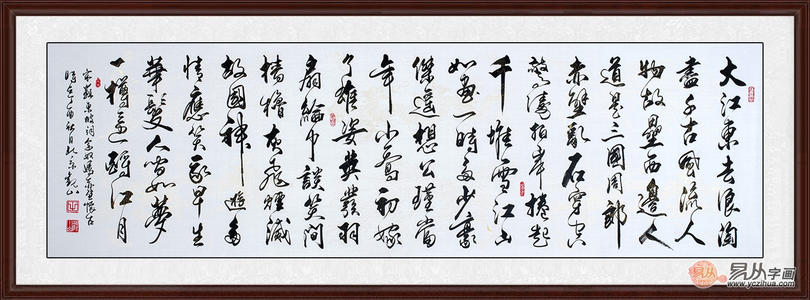 大江東去浪淘
盡千古風流人
物故壘西邊人
道是三國周郎
赤壁亂石穿空
驚濤拍岸捲起
千堆雪江山
如畫一時多少豪
傑遥想公瑾當
年小喬初嫁
了雄姿英發羽
扇綸巾談笑間
檣櫓灰飛煙滅
故國神遊多
情應笑我早生
華髮人間如夢
一樽還酹江月
宋蘇東坡詞念奴嬌赤壁懷古
時在丁酉秋月北京觀山
易从字画
www.yczihua.com